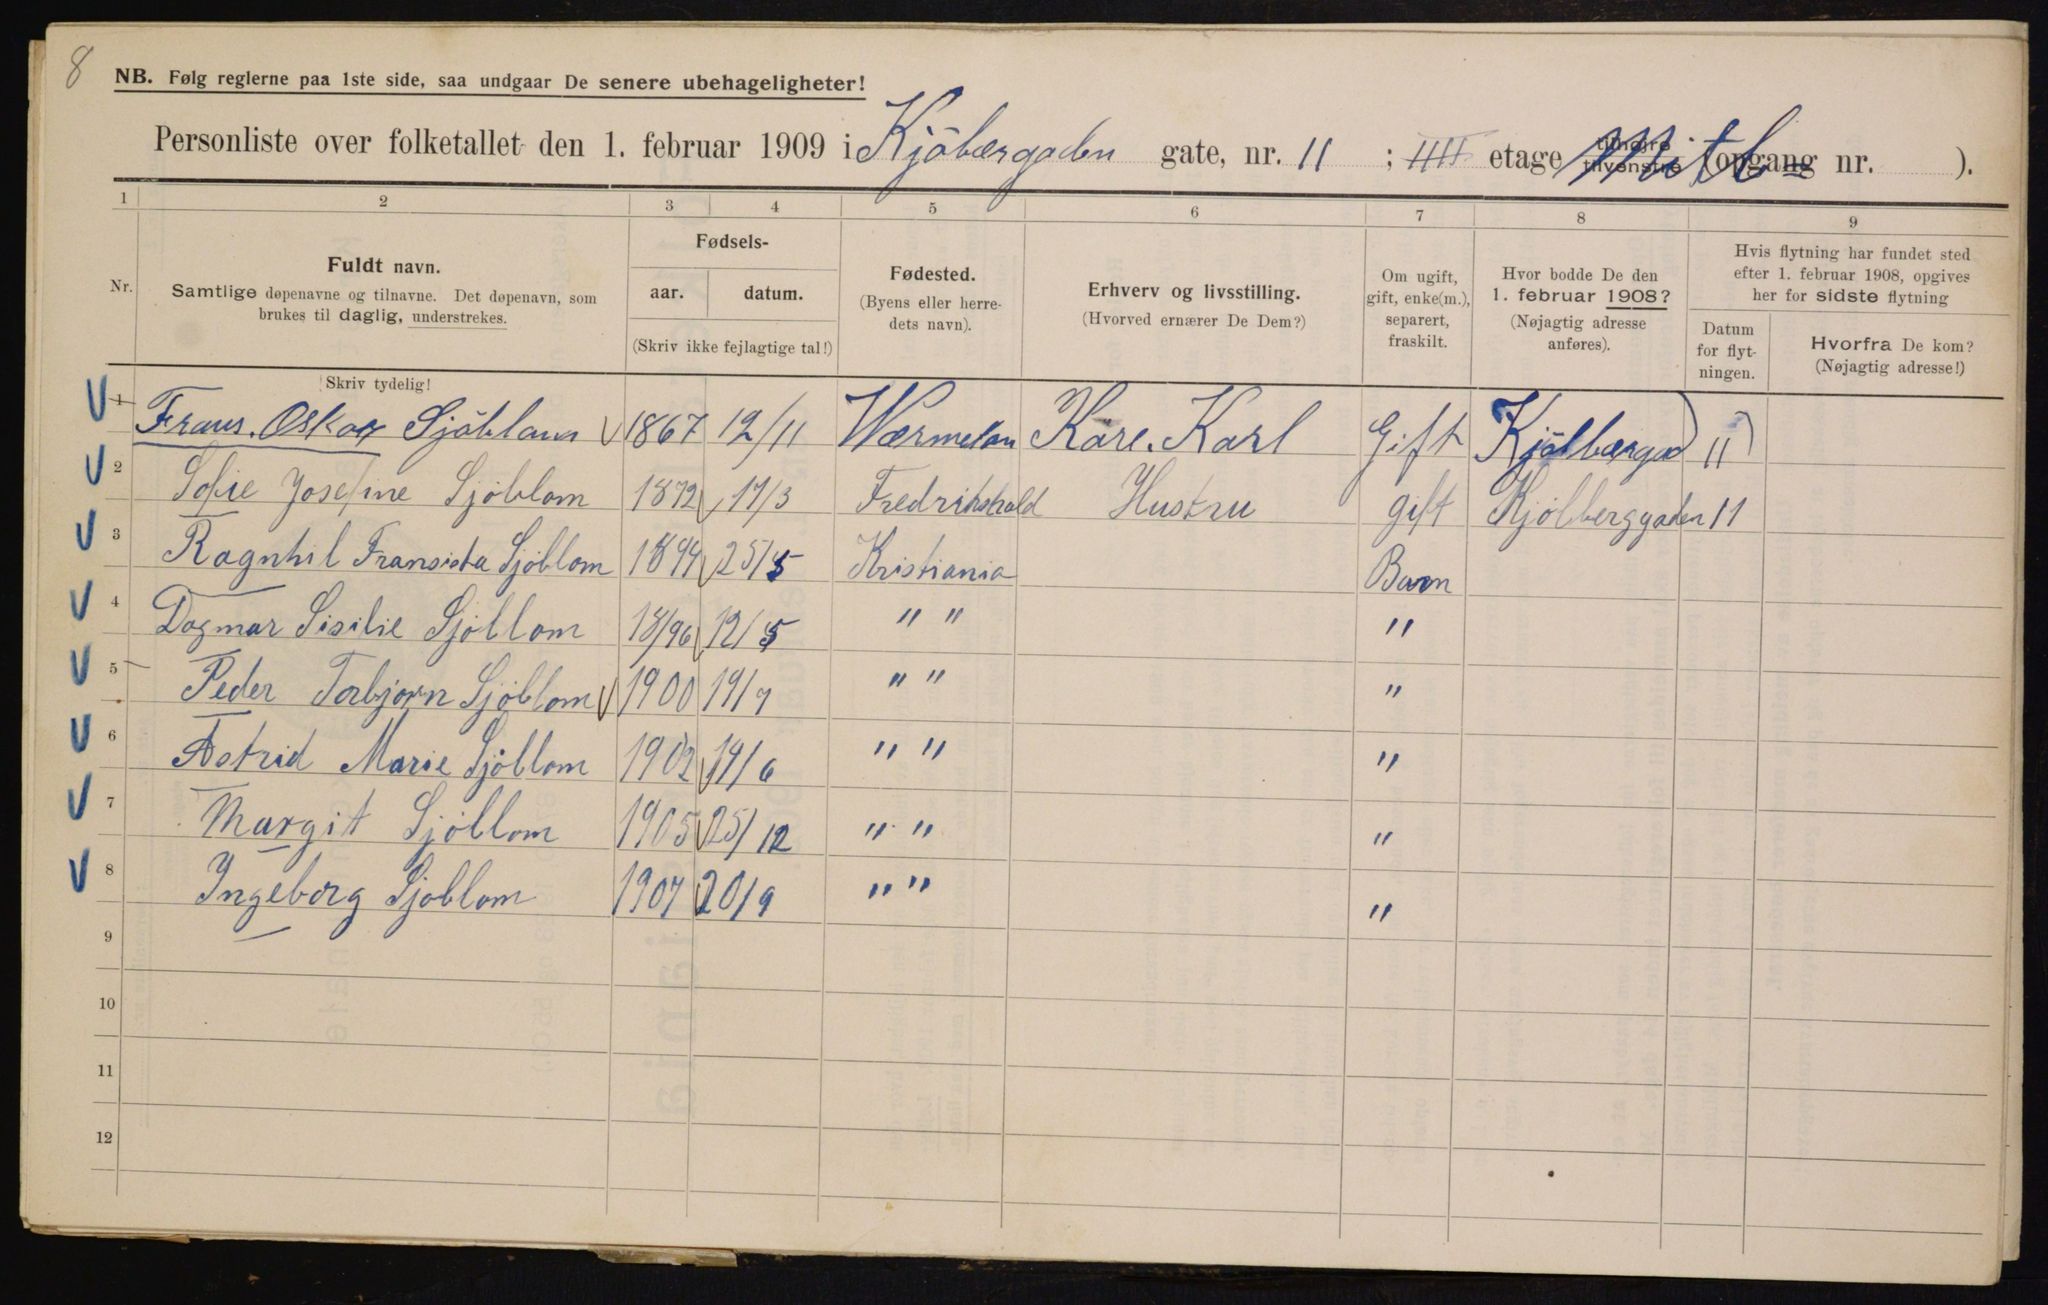 8
NB. Følg reglerne paa 1ste side, saa undgaar De senere ubehageligheter!
Personliste over folketallet den 1. februar 1909 i Kjöbærgaden gate, nr. 11 ; IIII etage tilhøjre tilvenstre (opgang nr. ).
1 2 3 4 5 6 7 8 9
Nr.
Fuldt navn.
Samtlige døpenavne og tilnavne. Det døpenavn, som
brukes til daglig, understrekes.
Skriv tydelig!
Fødsels-
aar. datum.
(Skriv ikke fejlagtige tal!)
Fødested.
(Byens eller herre-
dets navn).
Erhverv og livsstilling.
(Hvorved ernærer De Dem?)
Om ugift,
gift, enke(m.),
separert,
fraskilt.
Hvor bodde De den
1. februar 1908?
(Nøjagtig adresse
anføres).
Hvis flytning har fundet sted
efter 1. februar 1908, opgives
her for sidste flytning
Datum
for flyt-
ningen.
Hvorfra De kom?
(Nøjagtig adresse!)
1 Frans. Oskar Sjöblom 1867 12/11 Wærmelan Kare. Karl Gift Kjölbærgad 11
2 Sofie Josefine Sjöblom 1872 17/3 Fredrikshald Hustru gift Kjölberggaden 11
3 Ragnhil Fransiska Sjöblom 1894 25/5 Kristiania Barn
4 Dagmar Sisilie Sjöblom 18/96 12/5 " " "
5 Peder Torbjørn Sjöblom 1900 19/7 " " "
6 Astrid Marie Sjöblom 1902 14/6 " " "
7 Margit Sjöblom 1905 25/12 " " "
8 Ingeborg Sjöblom 1907 20/9 " " "
9
10
11
12